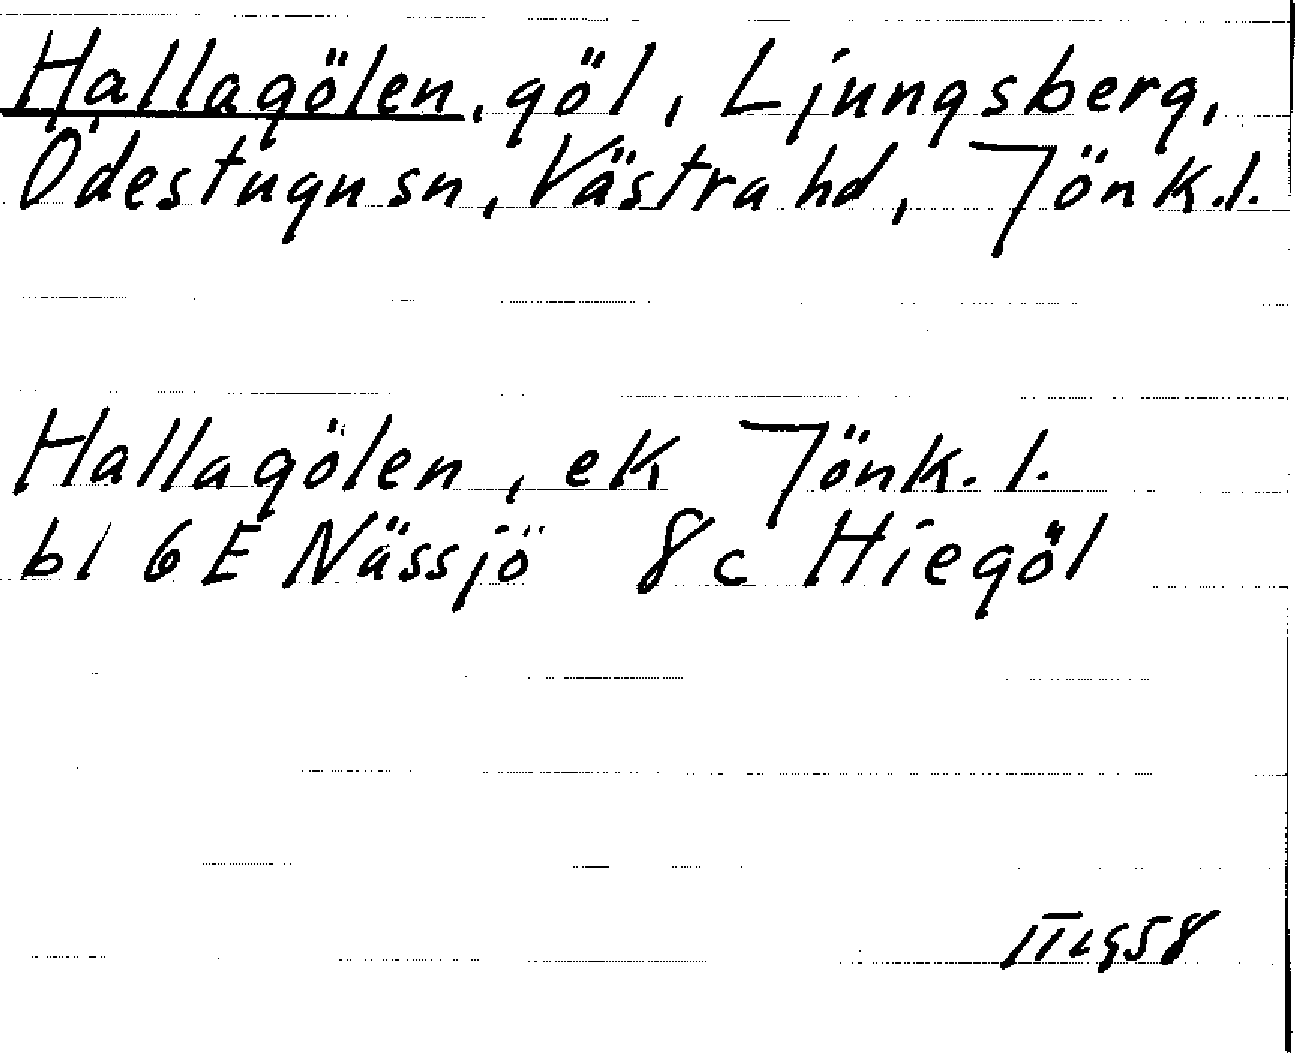 Hallagölen, göl, Ljungsberg,
Ödestugu sn, Västra hd, Jönk.l.
Hallagölen, ek Jönk.l.
bl 6E Nässjö 8c Hiegöl